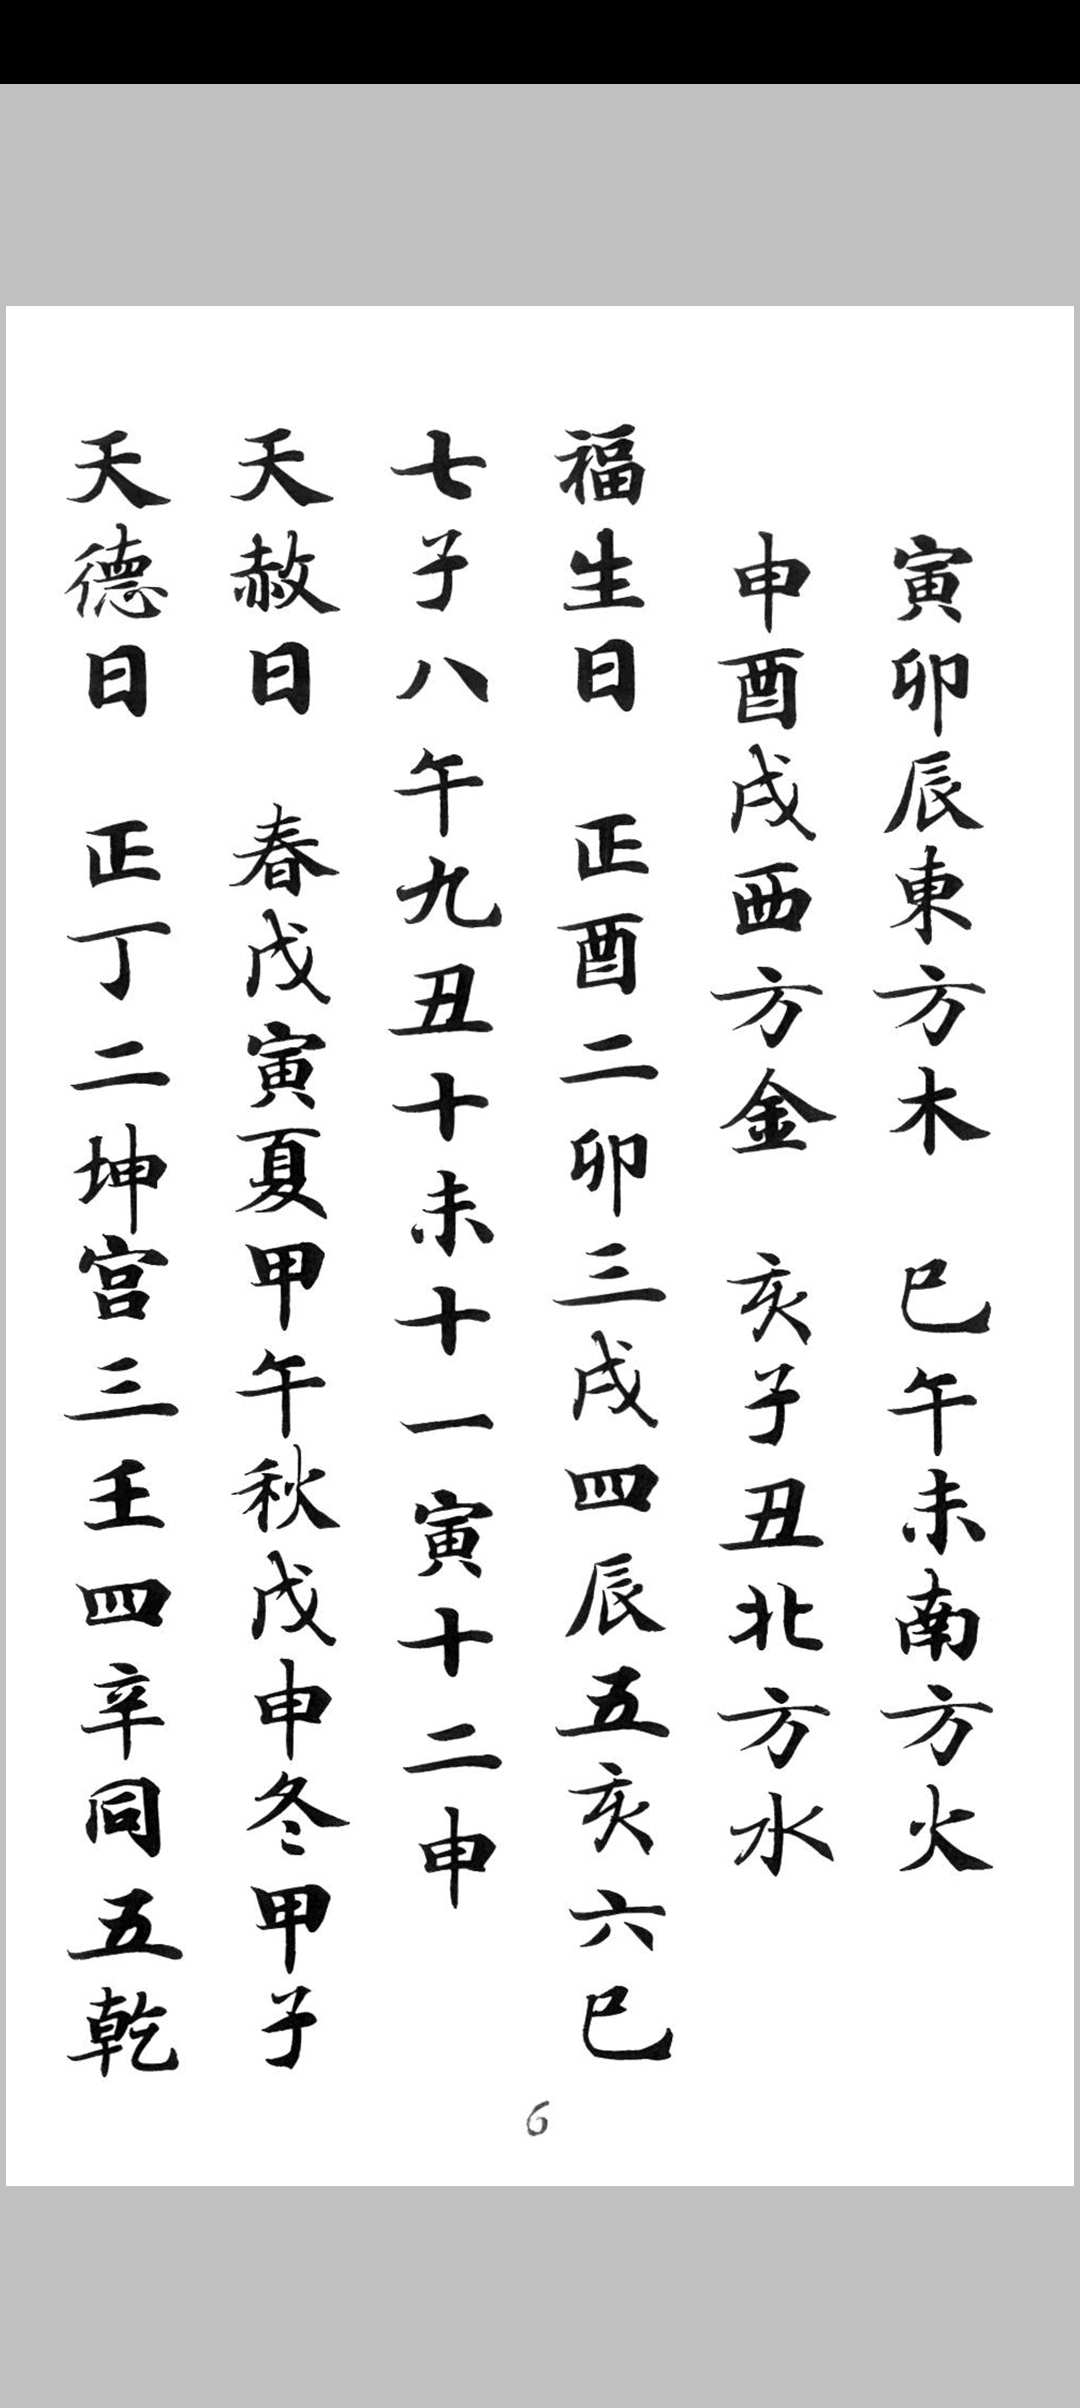 寅卯辰東方木　巳午未南方火
申酉戌西方金　亥子丑北方水
福生日　正酉二卯三戌四辰五亥六巳
七子八午九丑十未十一寅十二申
天赦日　春戊寅夏甲午秋戊申冬甲子
天德日　正丁二坤宮三壬四辛同五乾
6